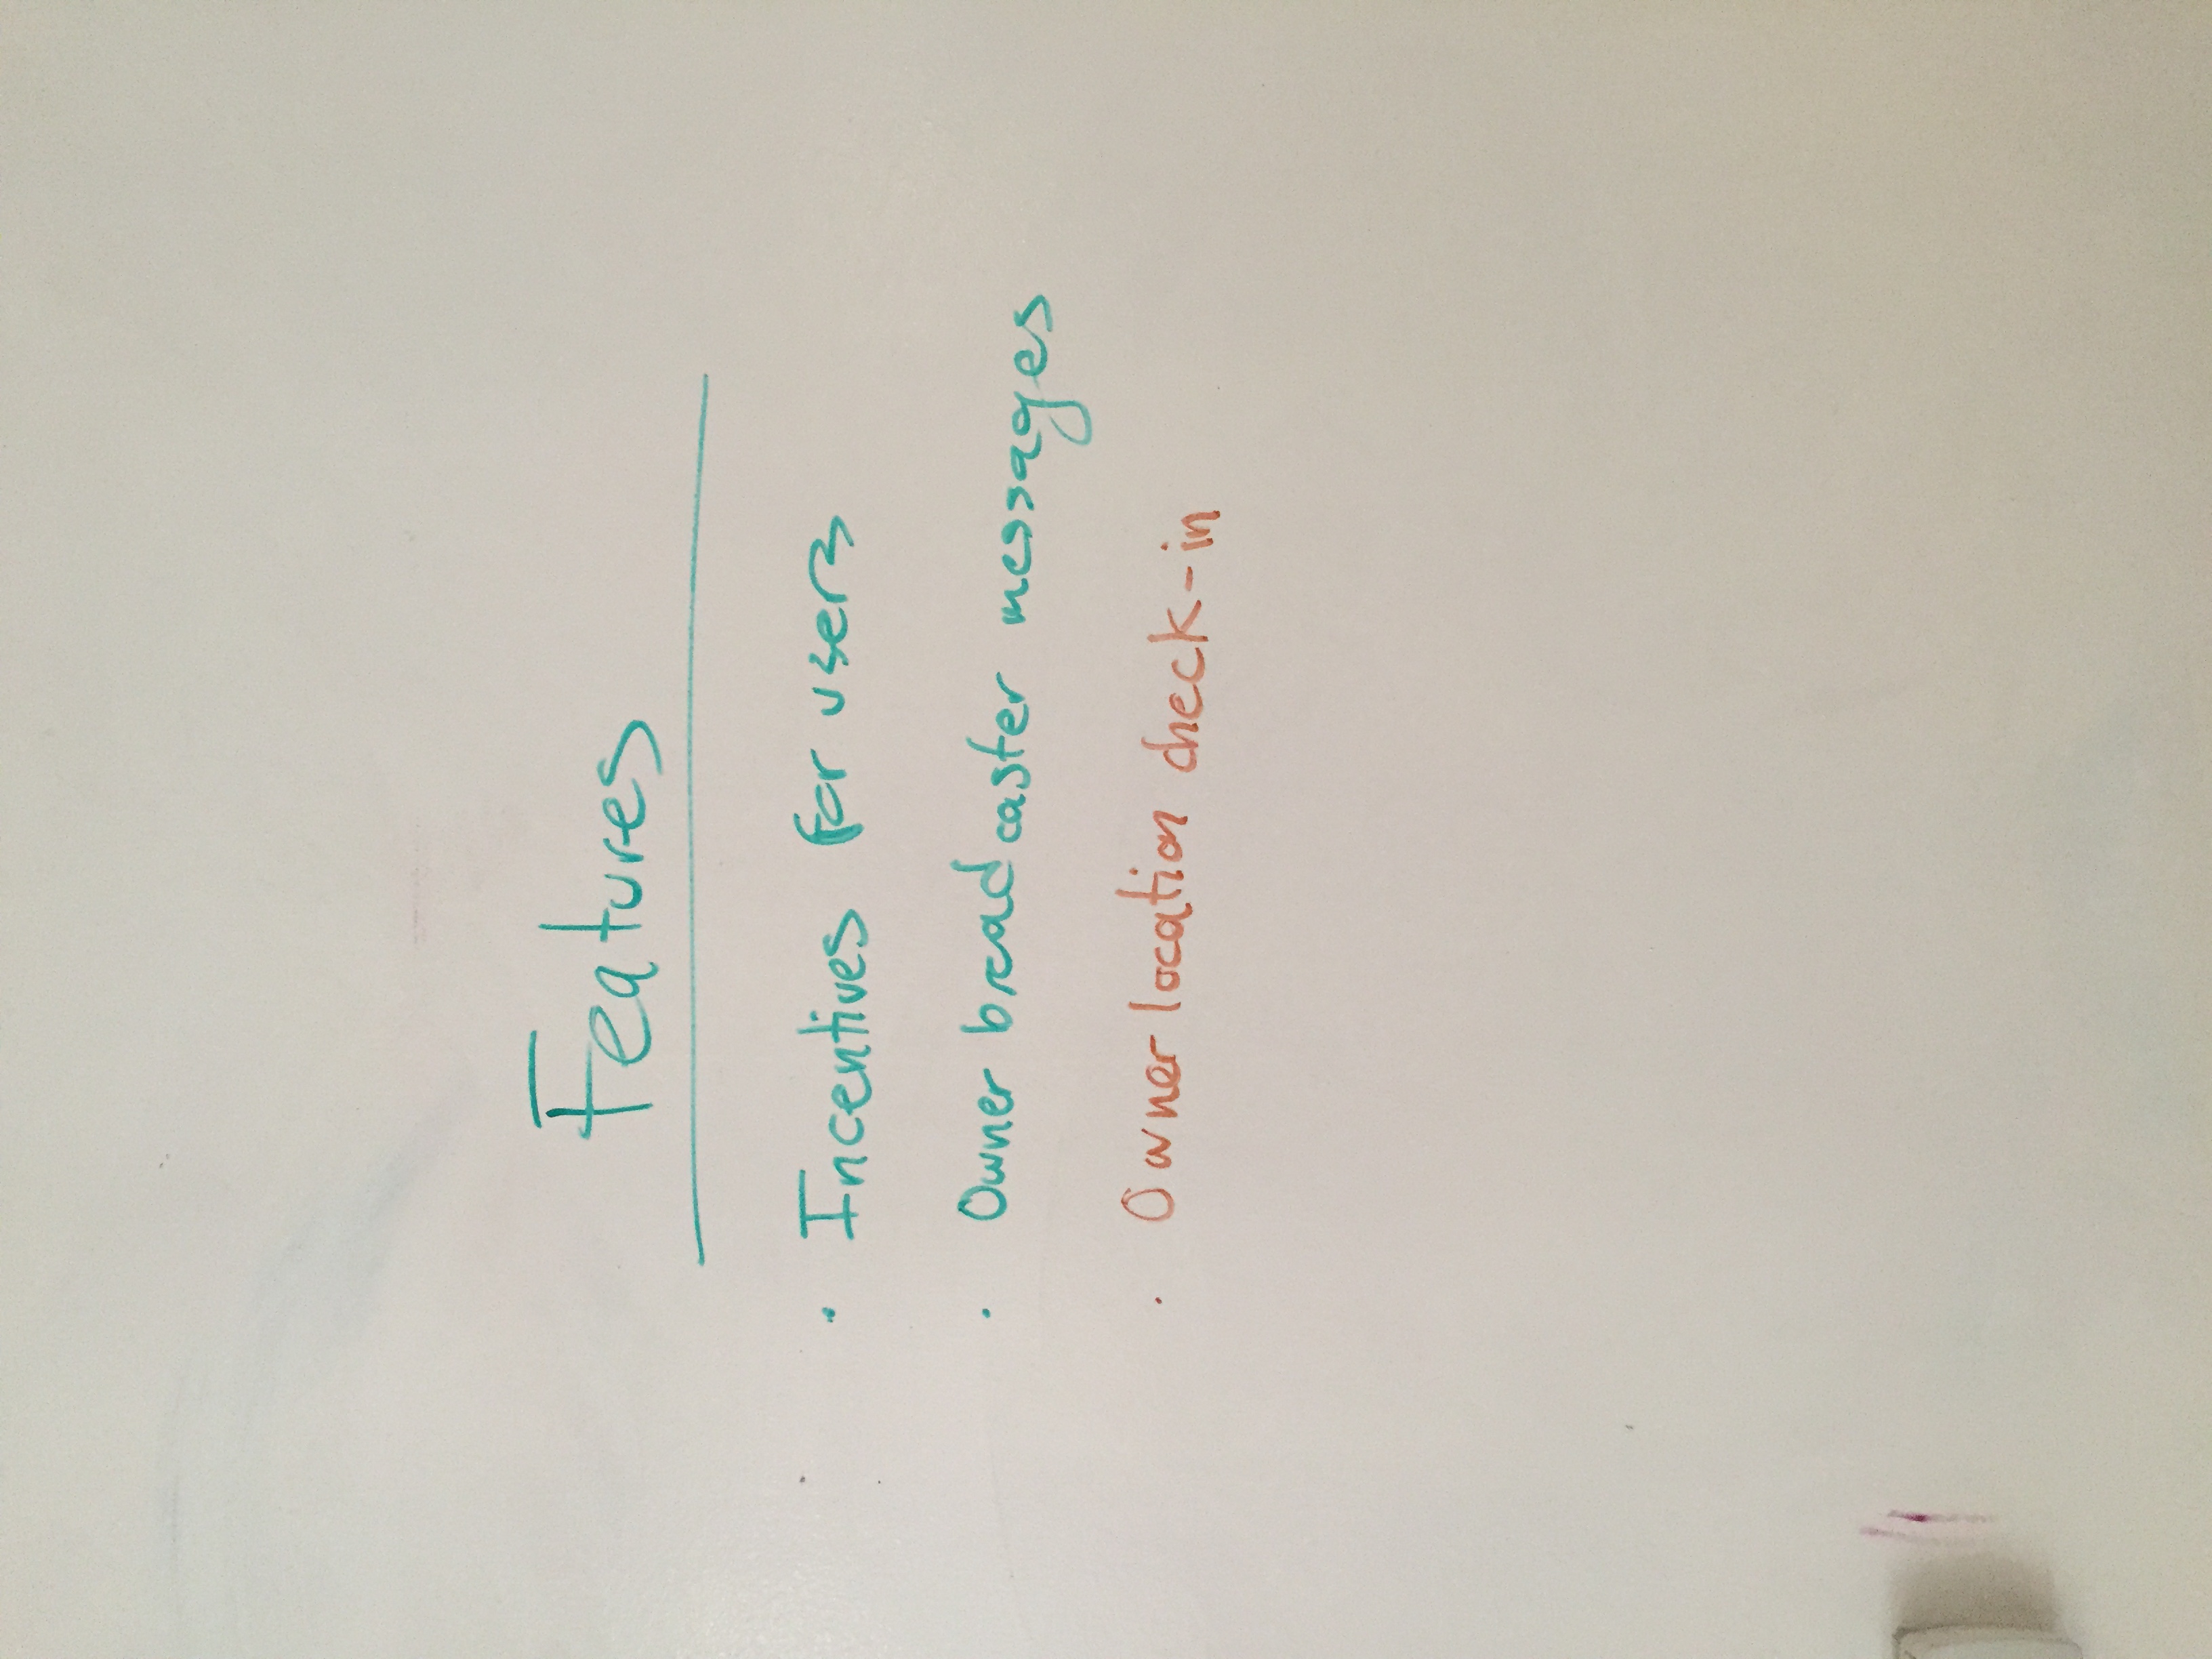 Features
· Incentives for users
· Owner broadcaster messages
· Owner location check-in